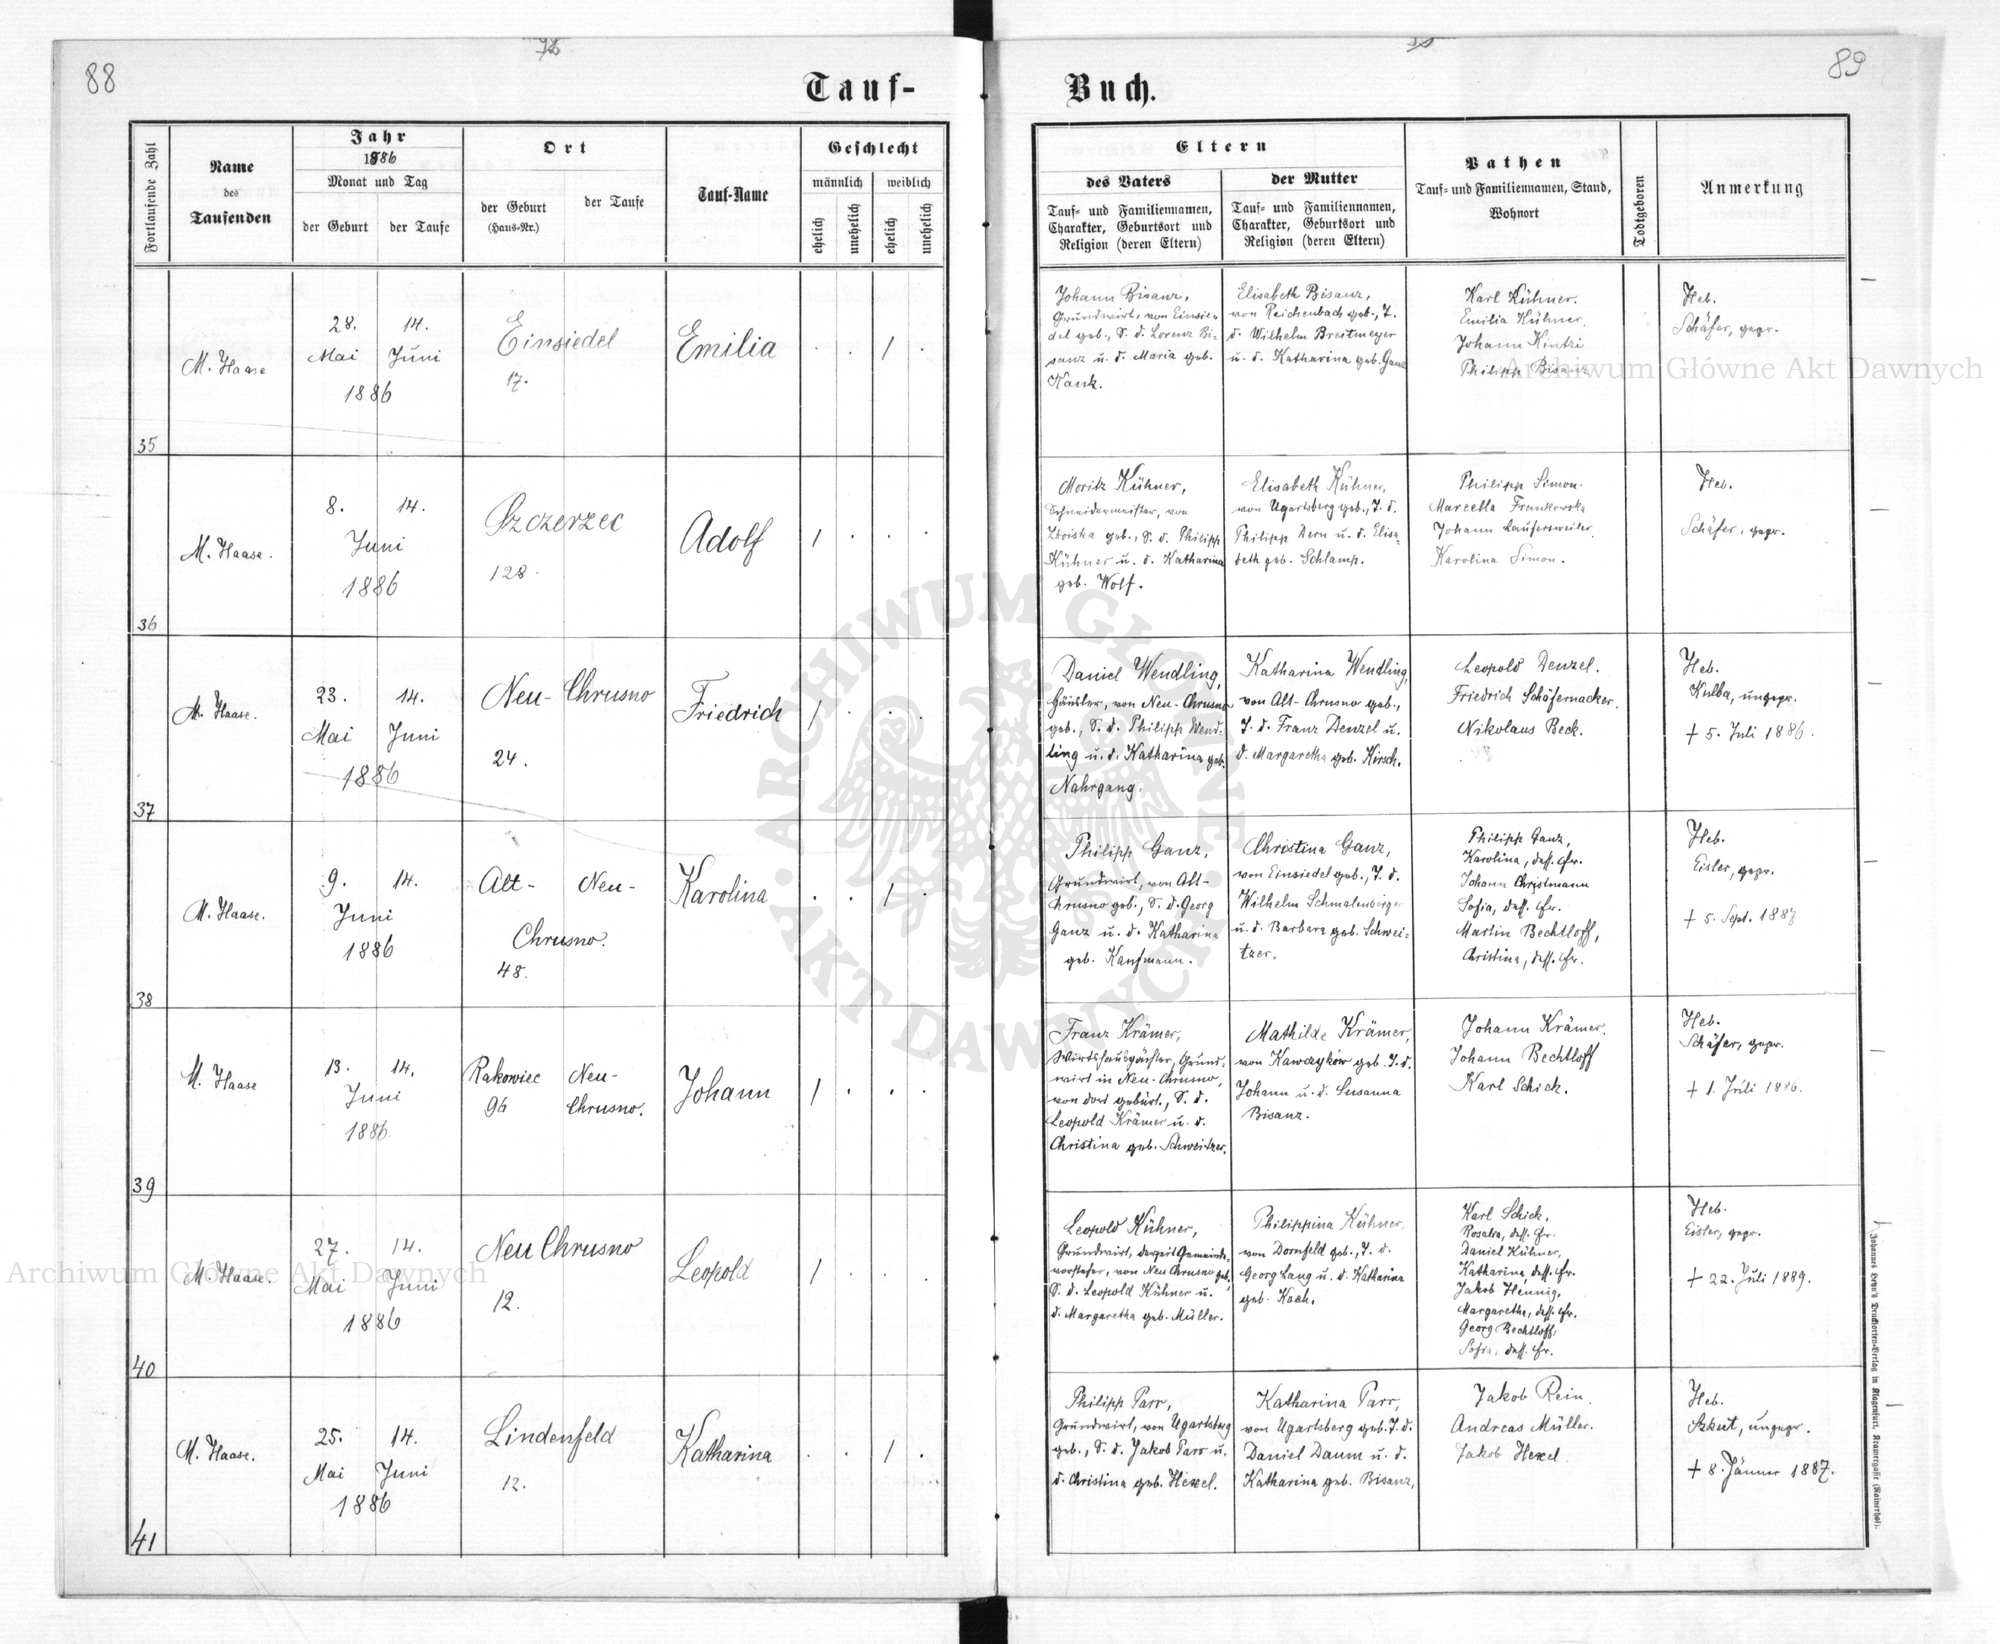 88
72
Tauf-
Fortlaufende Zahl
Name
des
Taufenden
Jahr
1886
Monat und Tag
der Geburt
der Taufe
Ort
der Geburt
(Haus-Nr.)
der Taufe
Tauf-Name
Geschlecht
männlich
weiblich
ehelich
unehelich
ehelich
unehelich
35
M. Haase
28. 14.
Mai Juni
1886
Einsiedel
17.
Emilia
1
36
M. Haase.
8. 14.
Juni
1886
Szczerzec
128.
Adolf
1
37
M. Haase.
23. 14.
Mai Juni
1886
Neu-Chrusno
24.
Friedrich
1
38
M. Haase.
9. 14.
Juni
1886
Alt- Neu-
Chrusno.
48.
Karolina
1
39
M. Haase
13. 14.
Juni
1886
Rakowiec Neu-
96 Chrusno.
Johann
1
40
M. Haase.
27. 14.
Mai Juni
1886
Neu Chrusno
12.
Leopold
1
41
M. Haase.
25. 14.
Mai Juni
1886
Lindenfeld
12.
Katharina
1
89
Buch.
Eltern
des Vaters
Tauf- und Familiennamen,
Charakter, Geburtsort und
Religion (deren Eltern)
der Mutter
Tauf- und Familiennamen,
Charakter, Geburtsort und
Religion (deren Eltern)
Pathen
Tauf- und Familiennamen, Stand,
Wohnort
Todtgeboren
Anmerkung
Johann Bisanz,
Grundwirt, von Einsie-
del geb., S. d. Lorenz Bi-
sanz u. d. Maria geb.
Kank.
Elisabeth Bisanz,
von Reichenbach geb., T.
d. Wilhelm Breitmeyer
u. d. Katharina geb. Ganz
Karl Kühner.
Emilia Kühner.
Johann Kintzi
Philipp Bisanz
Heb.
Schäfer, gepr.
Moritz Kühner,
Schneidermeister, von
geb., S. d. Philipp
Kühner u. d. Katharina
geb. Wolf.
Elisabeth Kühner,
von Ugartsberg geb., T. d.
Philipp Dern u. d. Elisa-
beth geb. Schlamp.
Philipp Simon.
Marcella Frankowska
Johann Laufersweiler.
Karolina Simon.
Heb.
Schäfer, gepr.
Daniel Wendling,
Häusler, von Neu-Chrusno
geb., S. d. Philipp Wend-
ling u. d. Katharina geb.
Nahrgang.
Katharina Wendling,
von Alt-Chrusno geb.,
T. d. Franz Denzel u.
d. Margaretha geb. Kirsch.
Leopold Denzel.
Friedrich Schäfernacker.
Nikolaus Beck.
Heb.
Kulba, ungepr.
† 5. Juli 1886.
Philipp Ganz,
Grundwirt, von Alt-
Chrusno geb., S. d. Georg
Ganz u. d. Katharina
geb. Kaufmann.
Christina Ganz,
von Einsiedel geb., T. d.
Wilhelm Schmalenberger
u. d. Barbara geb. Schwei-
tzer.
Philipp Ganz,
Karolina, dess. Fr.
Johann Christmann
Sofia, dess. Fr.
Martin Bechtloff,
Christina, dess. Fr.
Heb.
Eisler, gepr.
† 5. Sept. 1887
Franz Krämer,
Wirtshauspächter, Grund-
wirt in Neu-Chrusno,
von dort gebürt., S. d.
Leopold Krämer u. d.
Christina geb. Schweitzer.
Mathilde Krämer,
von Kawczyków geb. T. d.
Johann u. d. Susanna
Bisanz.
Johann Krämer.
Johann Bechtloff
Karl Schick.
Heb.
Schäfer, gepr.
† 1. Juli 1886.
Leopold Kühner,
Grundwirt, derzeit Gemeinde-
vorsteher, von Neu Chrusno geb.,
S. d. Leopold Kühner u.
d. Margaretha geb. Müller.
Philippina Kühner,
von Dornfeld geb., T. d.
Georg Lang u. d. Katharina
geb. Koch.
Karl Schick,
Rosalia, dess. Fr.
Daniel Kühner,
Katharina, dess. Fr.
Jakob Hennig,
Margaretha, dess. Fr.
Georg Bechtloff,
Sofia, dess. Fr.
Heb.
Eisler, gepr.
† 22. Juli 1889.
Philipp Parr,
Grundwirt, von Ugartsberg
geb., S. d. Jakob Parr u.
d. Christina geb. Hexel.
Katharina Parr,
von Ugartsberg geb. T. d.
Daniel Daum u. d.
Katharina geb. Bisanz,
Jakob Rein.
Andreas Müller.
Jakob Hexel.
Heb.
Szkut, ungepr.
† 8. Jänner 1887.
Johannes Leon's Drucksorten-Verlag in Klagenfurt, Kramergasse (Rainerhof).
Archiwum Główne Akt Dawnych
Archiwum Główne Akt Dawnych
ARCHIWUM GŁÓWNE
AKT DAWNYCH